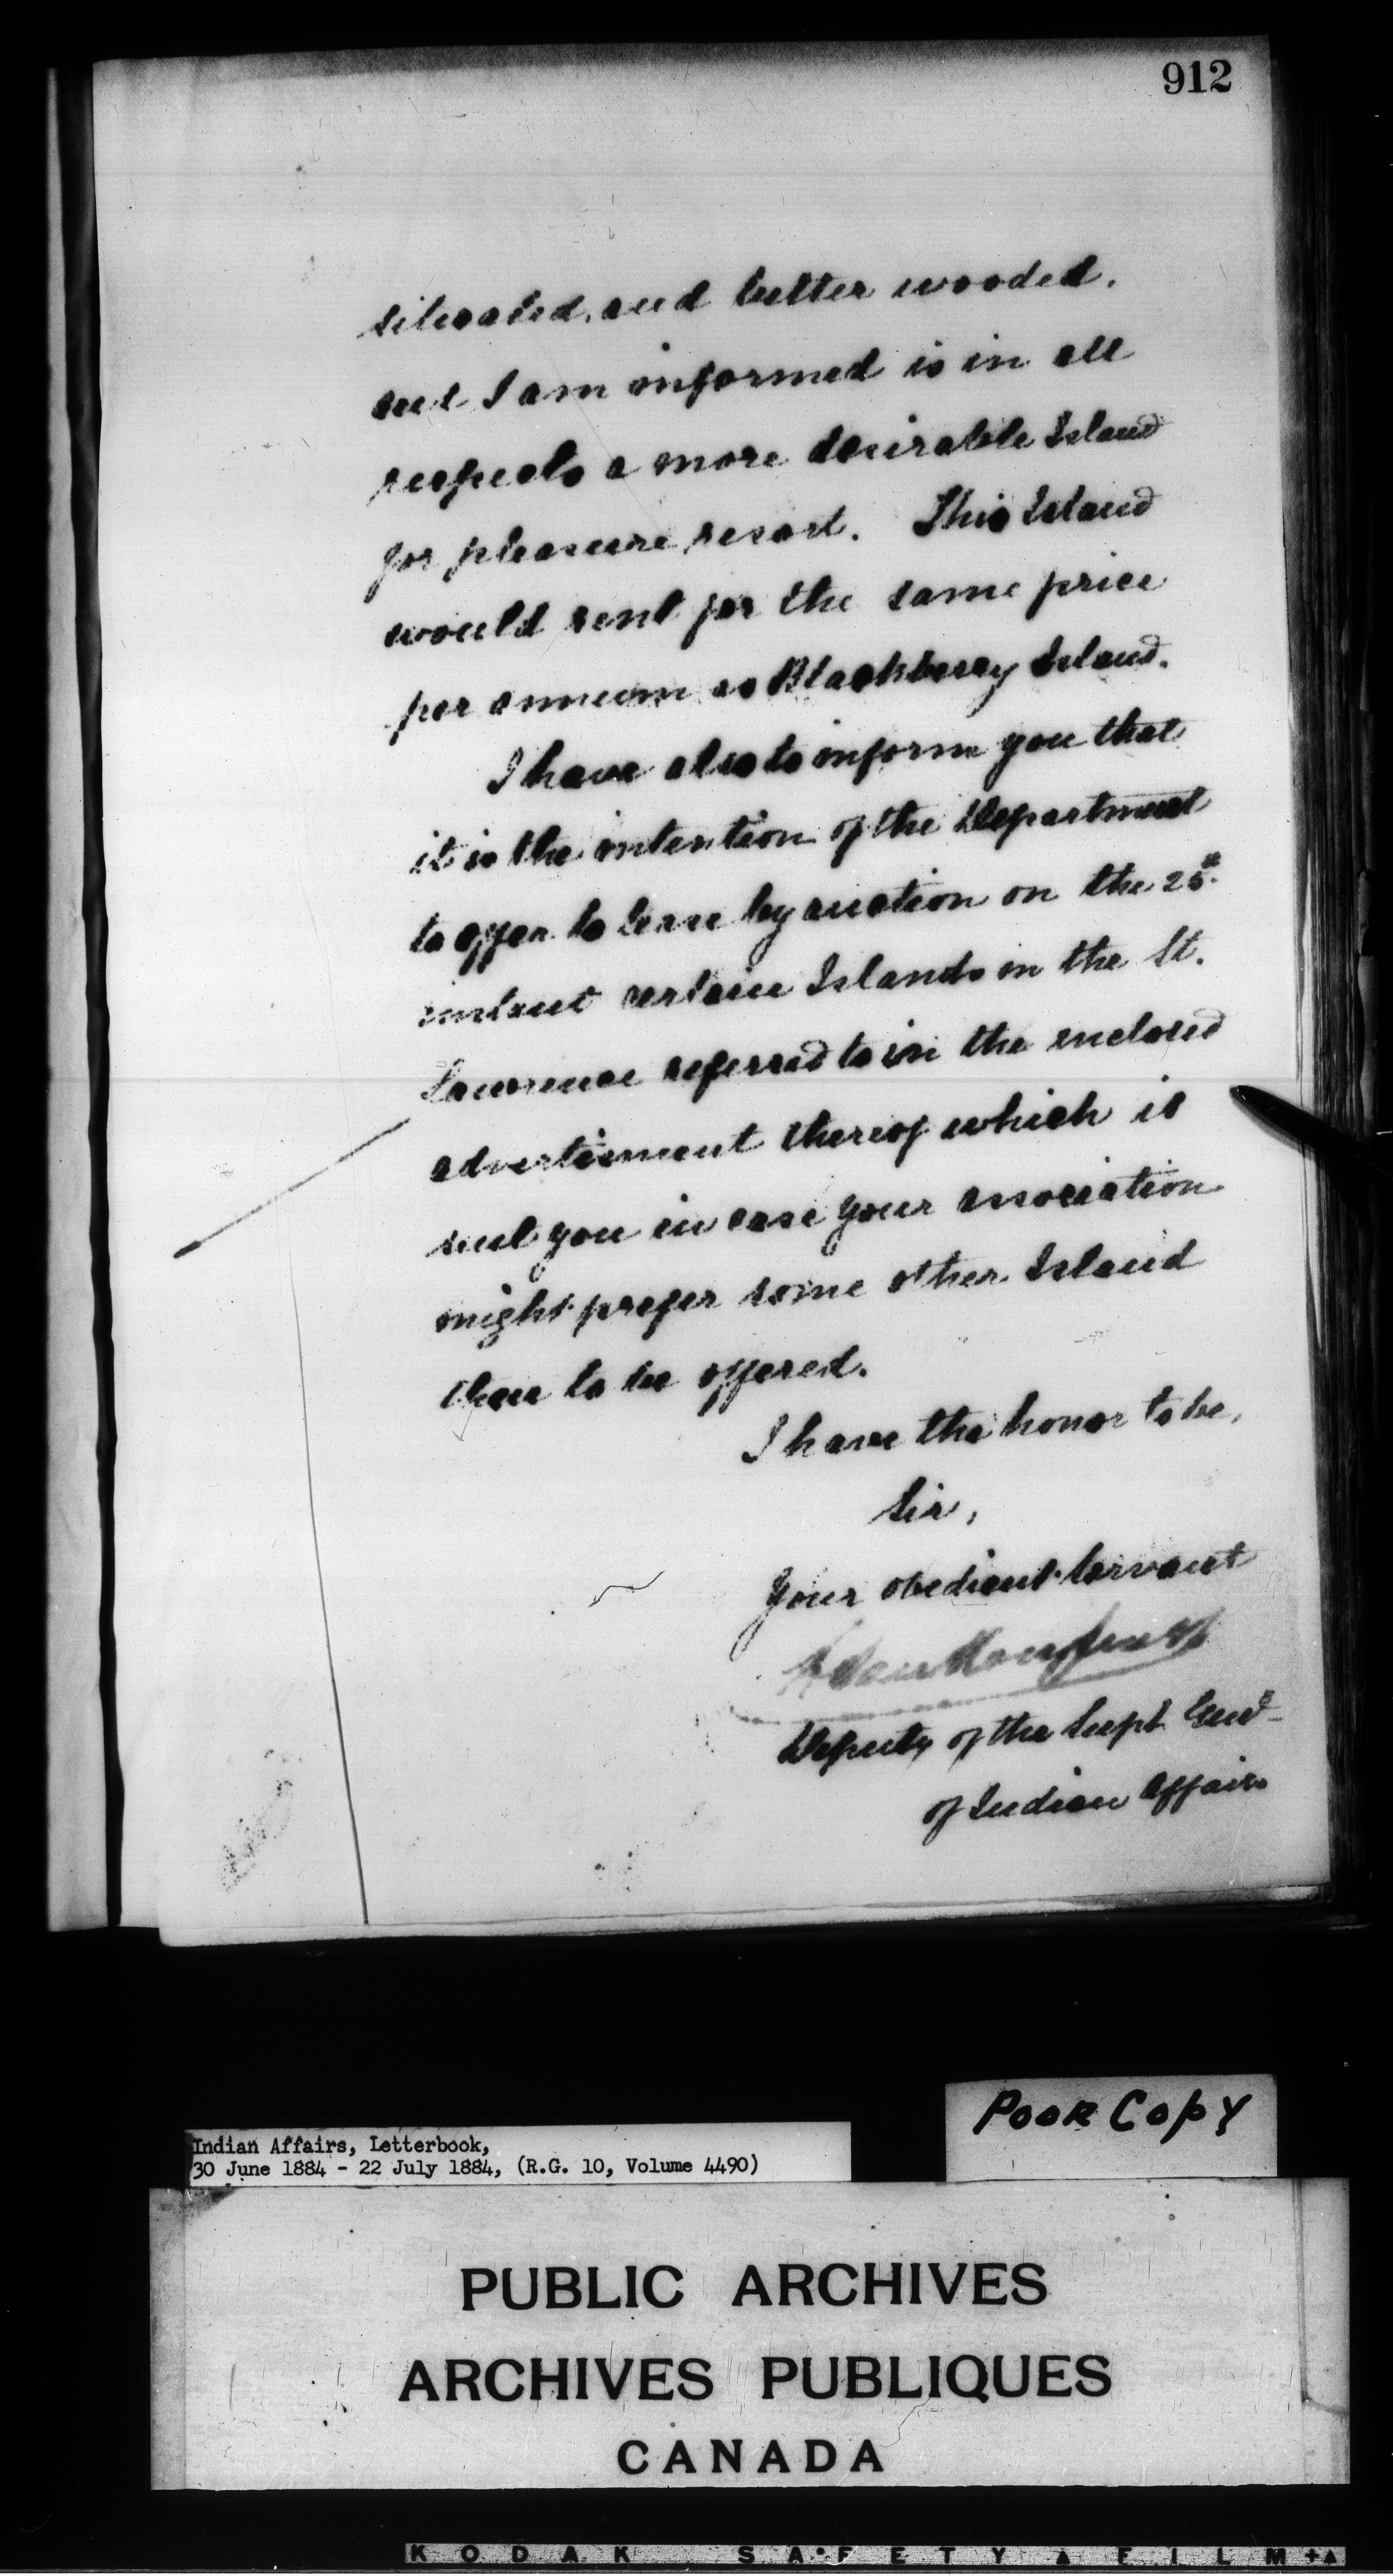 912
situated, and better wooded,
and I am informed is in all
respects a more desirable Island
for pleasure resort. This Island
would rent for the same price
per annum as Blackberry Island.
I have also to inform you that
it is the intention of the Department
to offer to lease by auction on the 25th
instant certain Islands in the St.
Lawrence referred to in the enclosed
advertisment thereof which is
sent you in case your association
might prefer some other Island
then to be offered.
I have the honor to be,
Sir,
Your obedient Servant
Deputy of the Supt Genl
of Indian Affairs
Poor Copy
Indian Affairs, Letterbook,
30 June 1884 - 22 July 1884, (R.G. 10, Volume 4490)
PUBLIC ARCHIVES
ARCHIVES PUBLIQUES
CANADA
KODAK SAFETY FILM